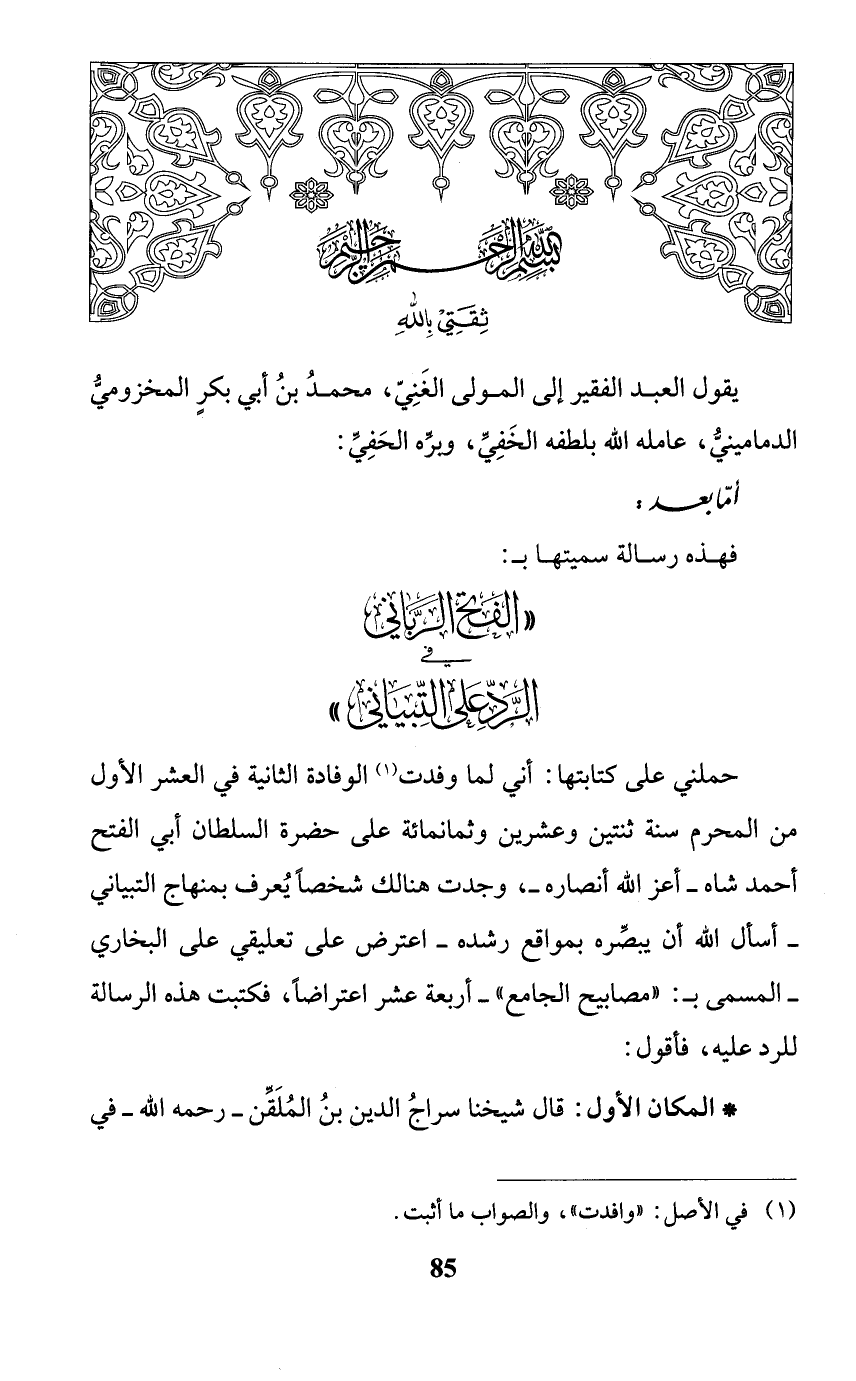 بسم الله الرحمن الرحيم
ثِقَتِيْ بِاللهِ
يقول العبد الفقير إلى المولى الغَنِيّ، محمدُ بنُ أبي بكرٍ المخزوميُّ
الدمامينيُّ، عامله الله بلطفه الخَفِيِّ، وبرِّه الحَفِيِّ:
أمّا بعد:
فهذه رسالة سميتها بـ:
«الفَتْح الرَّبَّانِي
في
الرَّدِّ عَلَى التِّبْيَانِي»
حملني على كتابتها: أني لما وفدت(١) الوفادة الثانية في العشر الأول
من المحرم سنة ثنتين وعشرين وثمانمائة على حضرة السلطان أبي الفتح
أحمد شاه ـ أعز الله أنصاره ـ، وجدت هنالك شخصاً يُعرف بمنهاج التبياني
ـ أسأل الله أن يبصِّره بمواقع رشده ـ اعترض على تعليقي على البخاري
ـ المسمى بـ: «مصابيح الجامع» ـ أربعة عشر اعتراضاً، فكتبت هذه الرسالة
للرد عليه، فأقول:
* المكان الأول: قال شيخنا سراجُ الدين بنُ المُلَقِّن ـ رحمه الله ـ في
(١) في الأصل: «وافدت»، والصواب ما أثبت.
85